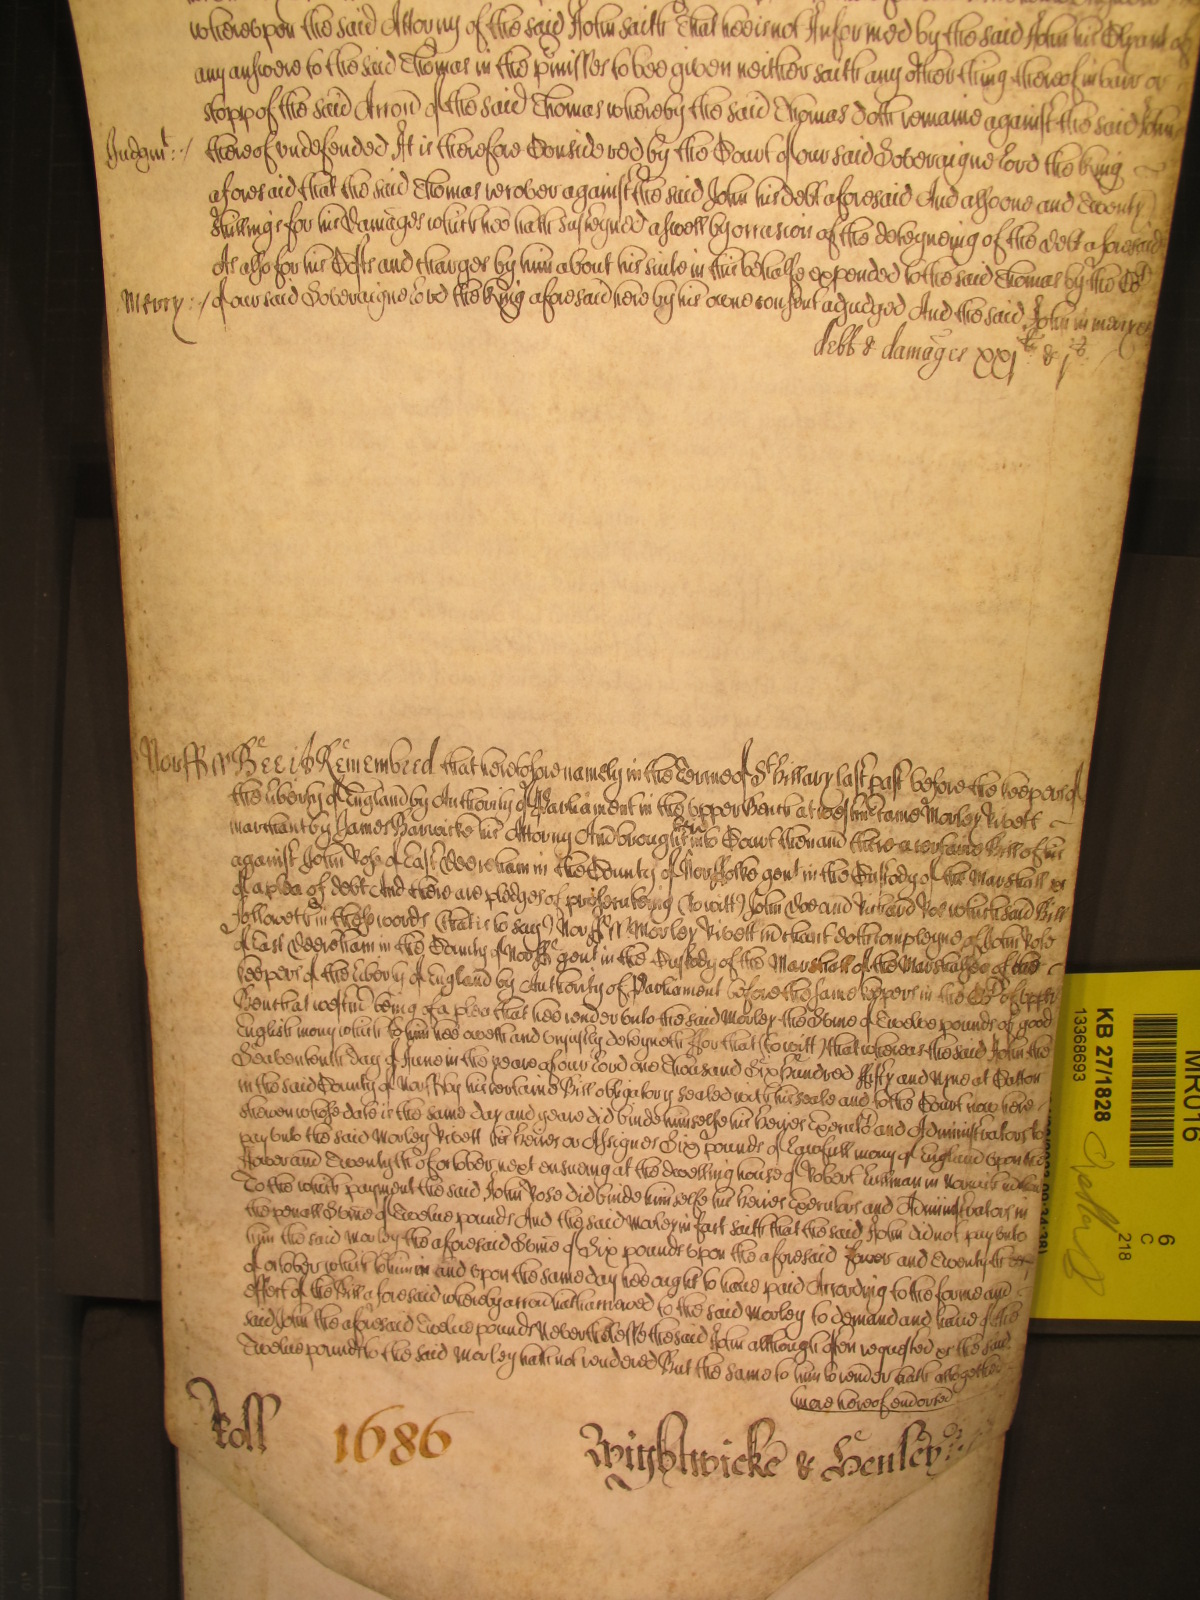 wherevpon the said Attorny of the said John saith That hee is not Informed by the said John his Clyant of
any answere to the said Thomas in the p'misses to bee given neither saith any other thing thereof in barr or
stopp of the said Accon of the said Thomas whereby the said Thomas doth remaine against the said John
Judgmt :/ thereof vndefended It is therefore Considered by the Court of our said Soveraigne Lord the King
aforesaid that the said Thomas recover against the said John his debt aforesaid And alsoe one and Twenty
shillings for his Damages which hee hath susteyned aswell by occasion of the deteyneing of the debt aforesaid
As also for his Costs and charges by him about his suite in this behalfe expended to the said Thomas by the Cot
Mercy :/ of our said Soveraigne Lord the King aforesaid here by his owne consent adjudged And the said John in mercye
debt & damages xxjli & js
Norff ss Bee it Remembred that heretofore namely in the Terme of St Hillary last past before the keepers of
the liberty of England by Authority of Parliament in the vpper Bench at Westmr came Morley Rivett
marchant by James Barwicke his Attorny And brought here into Court then and there a certaine Bill of his
against John Rose of East Deereham in the County of Norffolke gent in the Custody of the Marshall &c
of a plea of debt And there are pledges of prosecuteing (to witt) John Doe and Richard Roe which said Bill
followeth in these words (that is to say) Norff ss Morley Rivett m'chant doth compleyne of John Rose
of East Deereham in the County of Norff gent in the Custody of the Marshall of the Marshalsea of the
keepers of the liberty of England by Authority of Parliament before the same keepers in the Co't of vpper
Bench at westmr being of a plea that hee render vnto the said Morley the Sume of Twelve pounds of good
English mony which to him hee oweth and vniustly deteyneth ffor that (to witt) that whereas the said John the
Seaventeenth day of June in the yeare of our Lord one Thousand Six Hundred ffifty and Nyne at Catton
in the said County of Norff by his certaine Bill obligatory sealed with his seale and to the Court now here
shewen whose date is the same day and yeare did binde himselfe his heires Executors and Administrators to
pay vnto the said Morley Rivett his heires or Assignes Six pounds of lawfull mony of England vpon the
ffower and Twentyth of october next ensueing at the dwelling house of Robert in Norwich
To the which payment the said John Rose did binde him selfe his heires Executors and Administrators in
the penall Sume of Twelve pounds And the said Morley in fact saith that the said John did not pay vnto
him the said Morley the aforesaid Sume of Six pounds vpon the aforesaid fower and Twentyth of
of october which to him in and vpon the same day hee ought to have paid According to the forme and
effect of the Bill aforesaid whereby accon hath accrewed to the said Morley to demand and have of the
said John the aforesaid Twelve pounds Neverthelesse the said John although often requested &c the said
Twelve pounds to the said Morley hath not rendered But the same to him to render hath altogether
more hereof endorsed
Roll 1686 Wightwicke & Henley
KB 27/1828
13368693
MR016
6
C
218